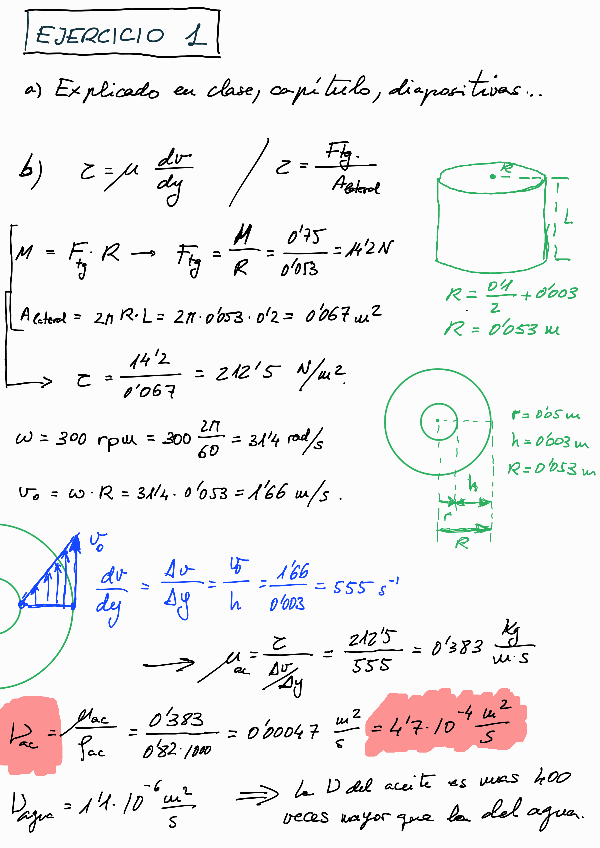 EJERCICIO 1
a) Explicado en clase, capítulo, diapositivas...
b) τ = μ dv/dy / τ = Ftg./Alateral
R
L
M = Ftg · R → Ftg = M/R = 0'75/0'053 = 14'2 N
R = 0'1/2 + 0'003
Alateral = 2π R·L = 2π·0'053·0'2 = 0'067 m²
R = 0'053 m
→ τ = 14'2/0'067 = 212'5 N/m².
ω = 300 rpm = 300 2π/60 = 31'4 rad/s
r = 0'05 m
h = 0'003 m
R = 0'053 m
v₀ = ω · R = 31'4 · 0'053 = 1'66 m/s.
h
r
R
v₀
dv/dy = Δv/Δy = v₀/h = 1'66/0'003 = 555 s⁻¹
→ μac = τ/(Δv/Δy) = 212'5/555 = 0'383 kg/m·s
νac = μac/ρac = 0'383/0'82·1000 = 0'00047 m²/s = 4'7·10⁻⁴ m²/s
νagua = 1'1·10⁻⁶ m²/s ⇒ la ν del aceite es mas 400
veces mayor que la del agua.